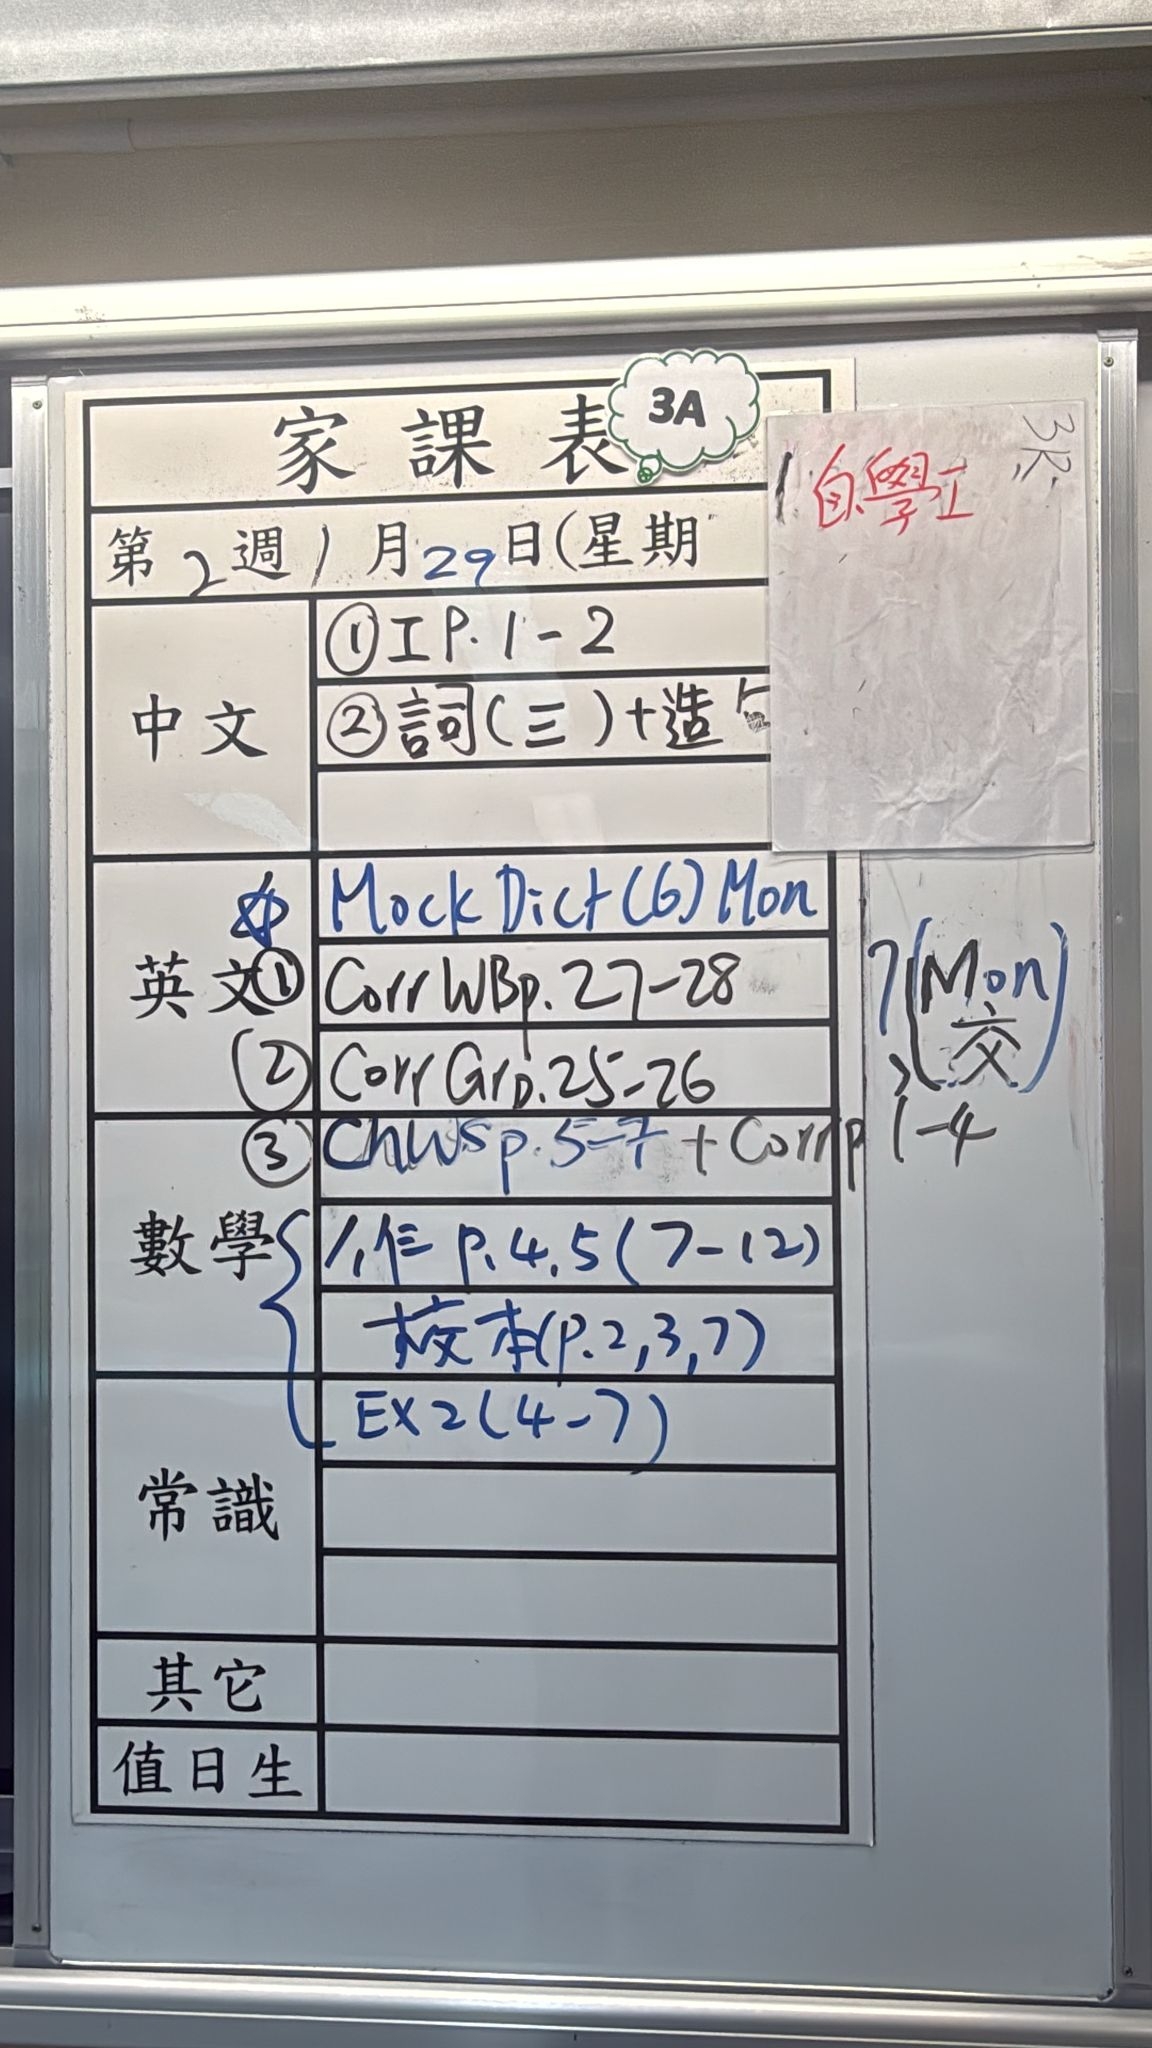 家課表
3A
3R
自學工
第2週1月29日(星期
中文
①工P.1-2
②詞(三)+造句
英文
☆ Mock Dict(6) Mon
① Corr WBp.27-28
② Corr Grp.25-26
(Mon
交)
③ ChWS p.5-7 + Corr p.1-4
數學
作 p.4,5(7-12)
校本(p.2,3,7)
Ex2(4-7)
常識
其它
值日生